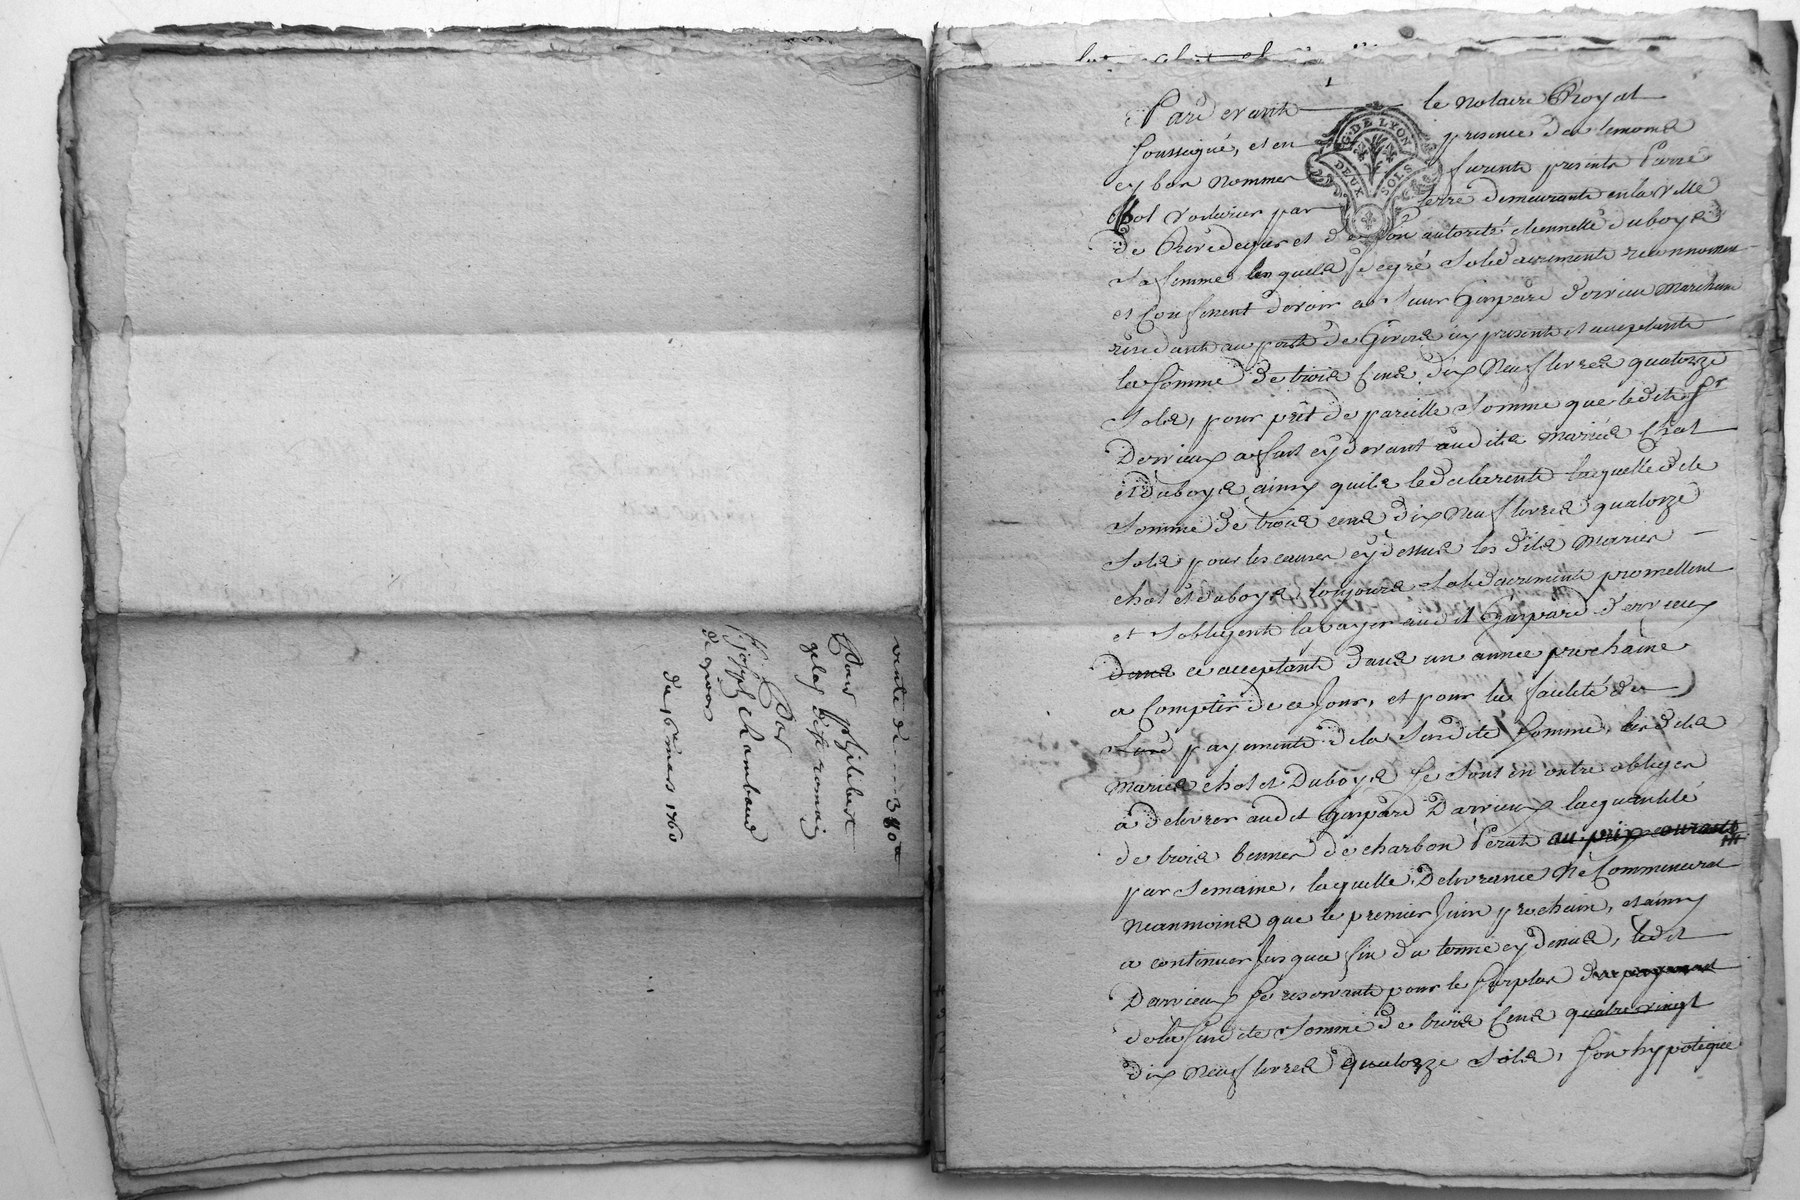 vente de 3080#
Pour philibert
gelas dit romain
Par
Sr joseph chambaud
de givor
du 16e mars 1760
1
Pardevant le Notaire Royal
soussigné, et en presence des temoins
cy bas nommes furent presents Pierre
Chol voiturier par terre demeurants en la ville
de Rivedegier et de son autorité etiennette duboys
sa femme lesquels de gré solidairement reconnoissent
et confessent devoir a Sieur Gaspard Derrieu Marchand
residant au port de Givors icy present et acceptant
la somme de trois cens dix neuf livres quatorze
sols, pour prêt de pareille somme que ledit Sr
Derrieux a fait cy devant audits mariés Chol
et Duboys ainsy quils le declarent laquelle dite
somme de trois cens dix neuf livres quatorze
sols pour les causes cy dessus les dits Maries
chol et duboys toujours solidairement promettent
et s'obligent la payer audit Gaspard derrieux
dans ce acceptant dans un année prochaine
a compter de ce jour, et pour la facilité des
payements de la susdite somme, lesdits
Maries chol et Duboys se sont en outre obliges
a delivrer audit Gaspard Darrieux la quantité
de trois bennes de charbon Perat au prix courant
par semaine, laquelle delivrance ne commencera
neanmoins que le premier Juin prochain, et ainsy
a continuer jusqua fin du terme cy dessus, ledit
Darrieux se reservant pour le surplus du payement
de la susdite somme de trois cens quatre vingt
dix neuf livres quatorze sols, son hypoteque
G. DE LYON
DEUX SOLS